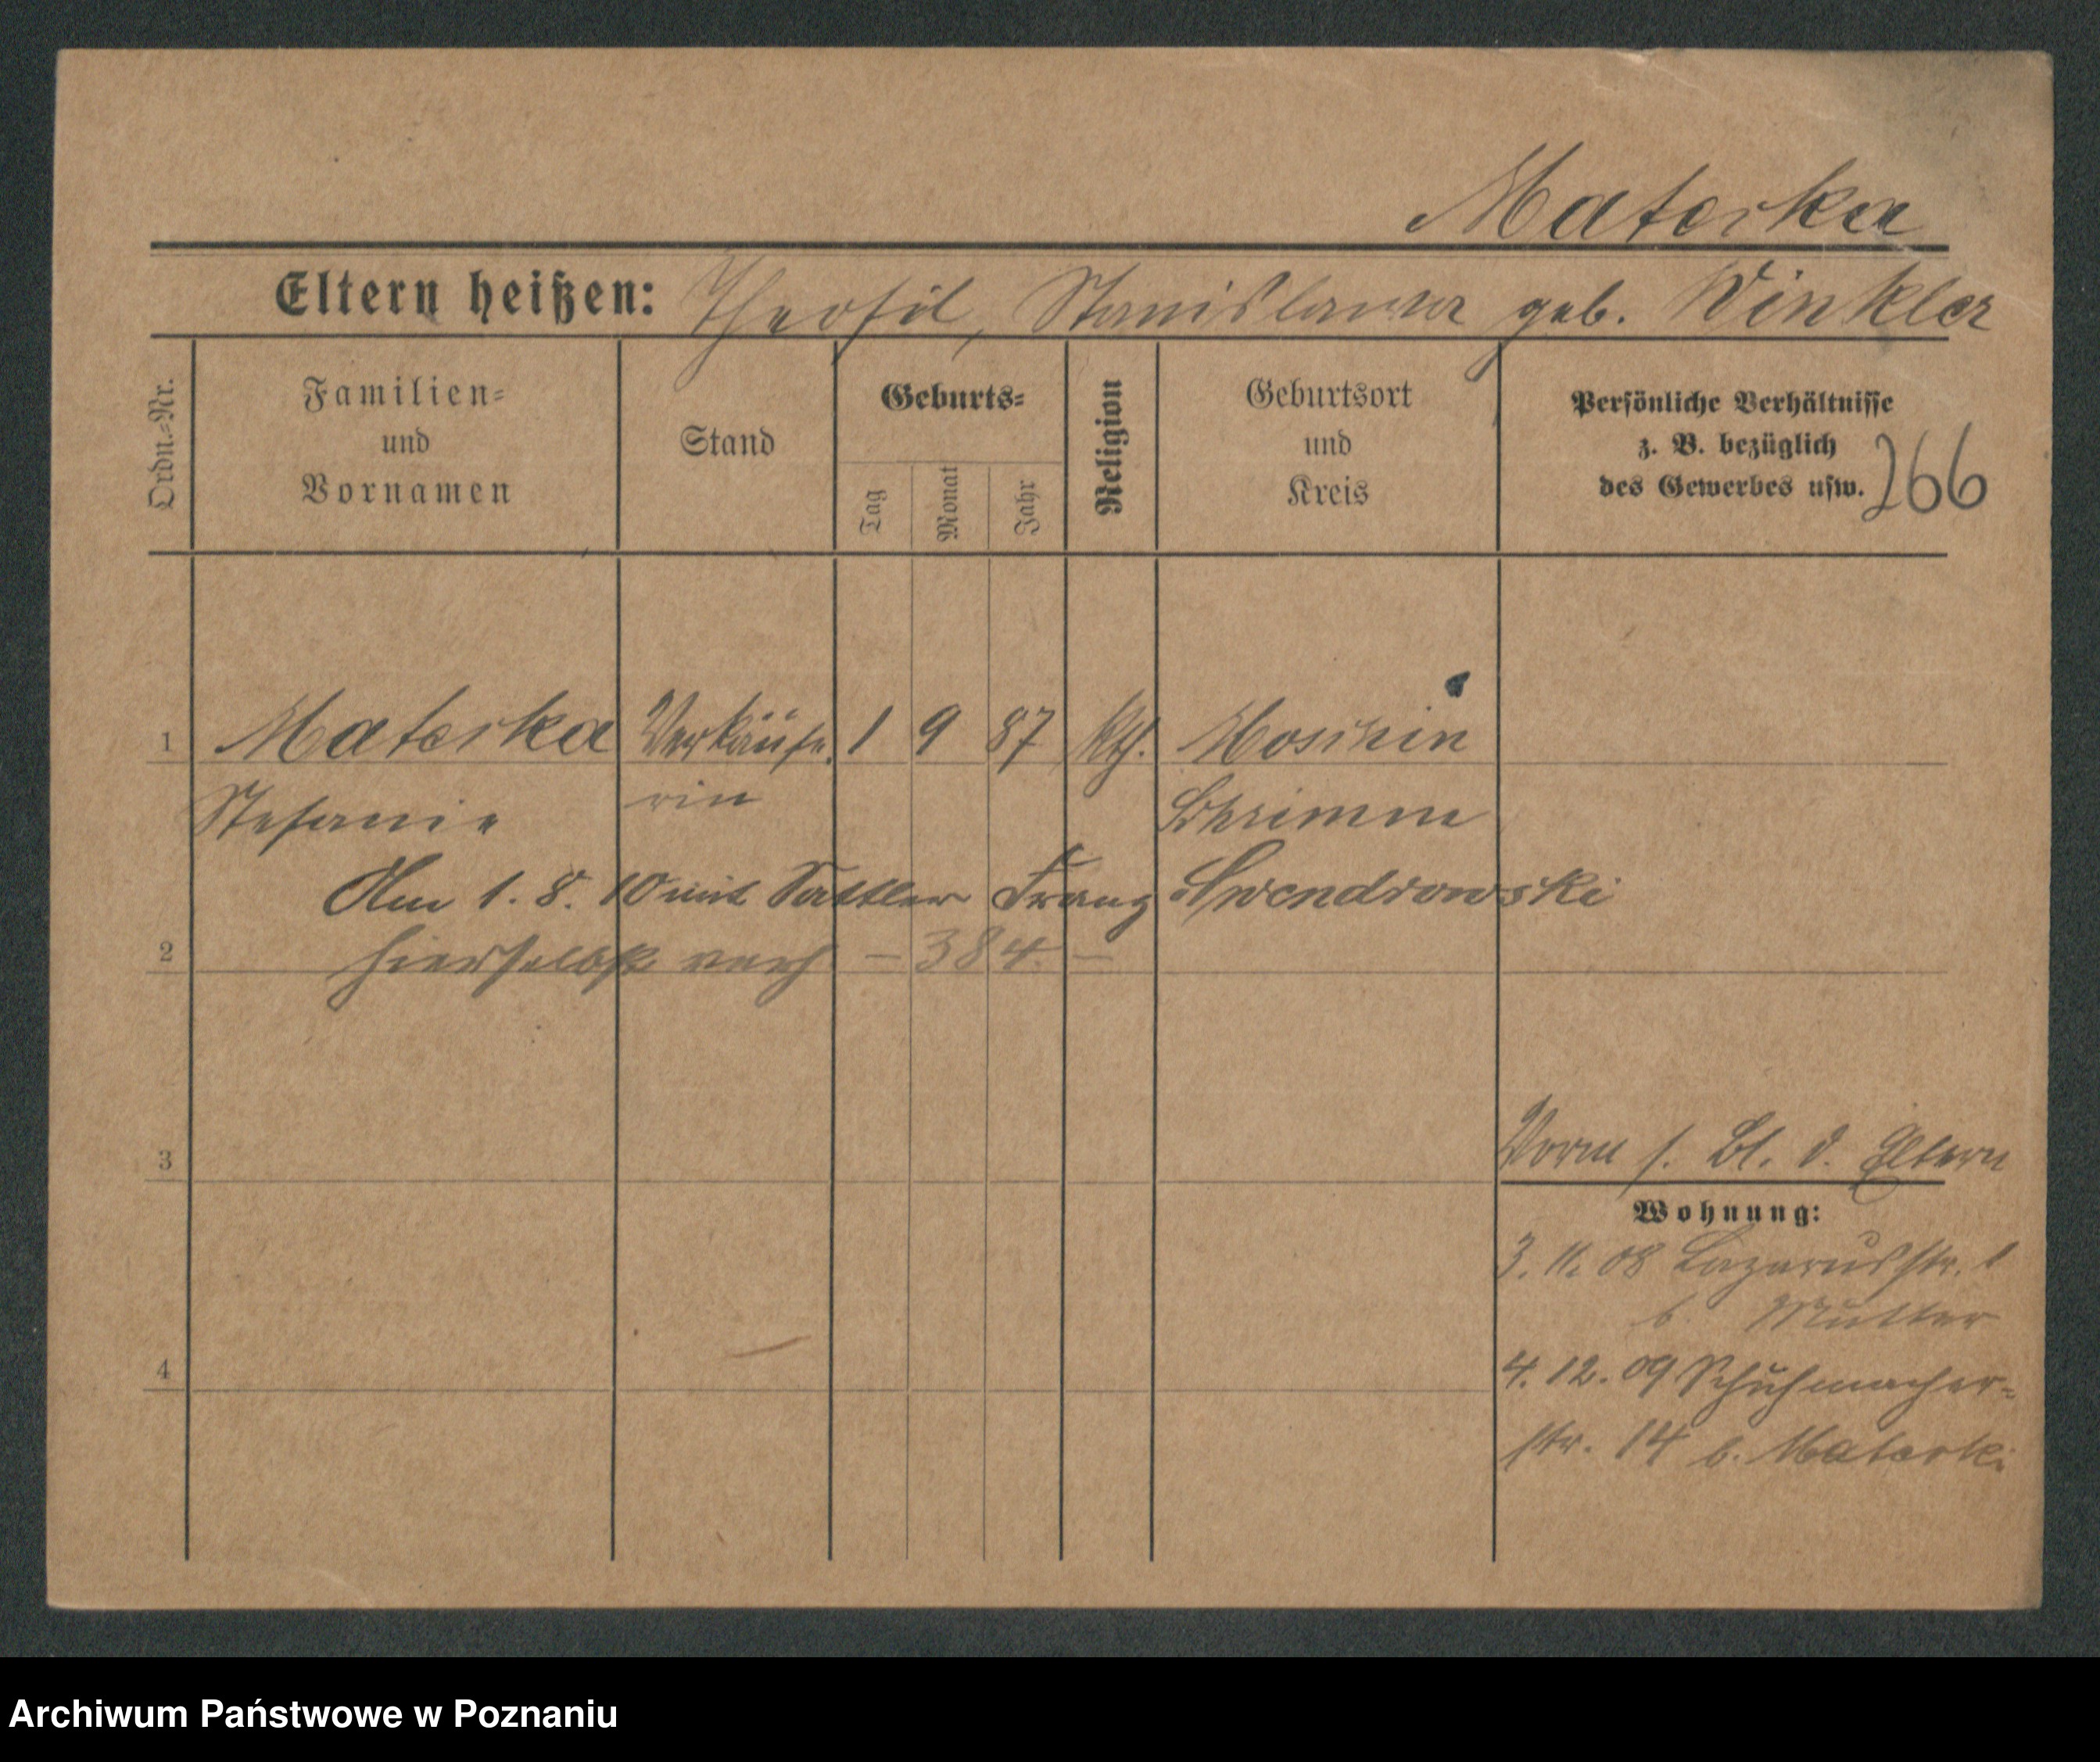 Materka
Eltern heißen: Theofil, Stanislawa geb. Winkler
Ordn.-Nr.
Familien-
und
Vornamen
Stand
Geburts-
Tag
Monat
Jahr
Religion
Geburtsort
und
Kreis
Persönliche Verhältnisse
z. B. bezüglich
des Gewerbes usw.
266
1 Materka Verkäufe- 1 9 87 kth. Moschin
Stefanie rin Schrimm
Am 1. 8. 10 mit Sattler Franz
2 hierselbst verh – 384 –
3
Vorm s. Bl. d. Eltern
Wohnung:
3. 11. 08 Lazarusstr. 1
b. Mutter
4
4. 12. 09 Schuhmacher-
str. 14 b. Materka
Archiwum Państwowe w Poznaniu